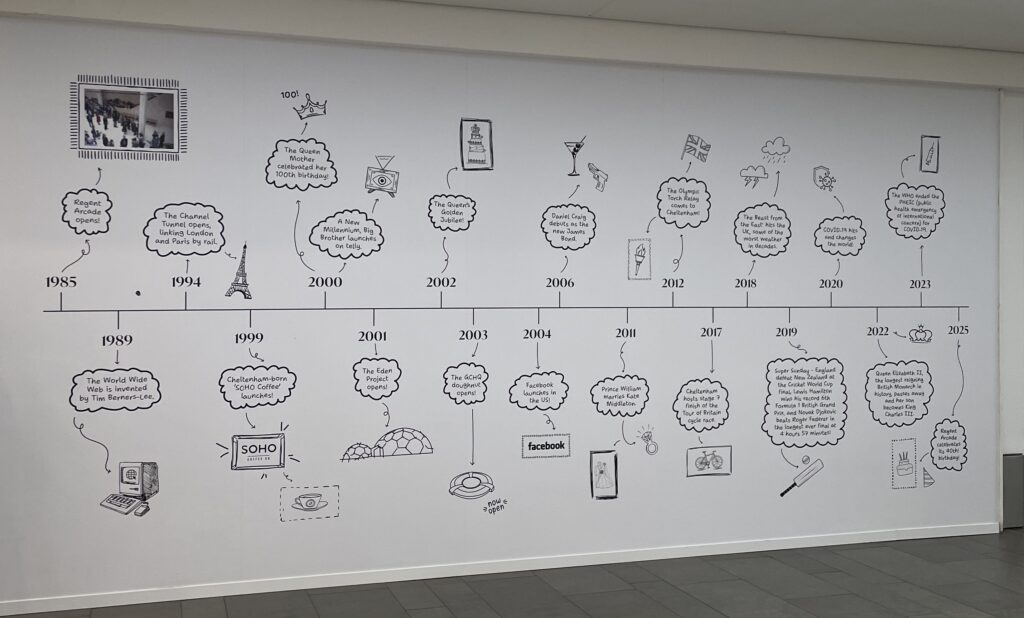 1985
Regent
Arcade
opens!
1989
The World Wide
Web is invented
by Tim Berners-Lee.
1994
The Channel
Tunnel opens,
linking London
and Paris by rail.
1999
Cheltenham-born
'SOHO Coffee'
launches!
SOHO
COFFEE CO
2000
100!
The Queen
Mother
celebrated her
100th birthday!
A New
Millennium, Big
Brother launches
on telly.
2001
The Eden
Project
opens!
2002
The Queen's
Golden
Jubilee!
2003
The GCHQ
doughnut
opens!
now
open
2004
Facebook
launches in
the US!
facebook
2006
Daniel Craig
debuts as the
new James
Bond.
2011
Prince William
marries Kate
Middleton.
2012
The Olympic
Torch Relay
comes to
Cheltenham!
2017
Cheltenham
hosts stage 7
finish of the
Tour of Britain
cycle race.
2018
The 'Beast from
the East' hits the
UK, some of the
worst weather in
decades.
2019
Super Sunday - England
defeat New Zealand at
the Cricket World Cup
final, Lewis Hamilton
wins his record 6th
Formula 1 British Grand
Prix, and Novak Djokovic
beats Roger Federer in
the longest ever final at
4 hours 57 minutes!
2020
COVID-19 hits
and changes
the world!
2022
Queen Elizabeth II,
the longest reigning
British Monarch in
history, passes away
and her son
becomes King
Charles III.
2023
The WHO ended the
PHEIC (public
health emergency
of international
concern) for
COVID-19.
2025
Regent
Arcade
celebrates
its 40th
birthday!